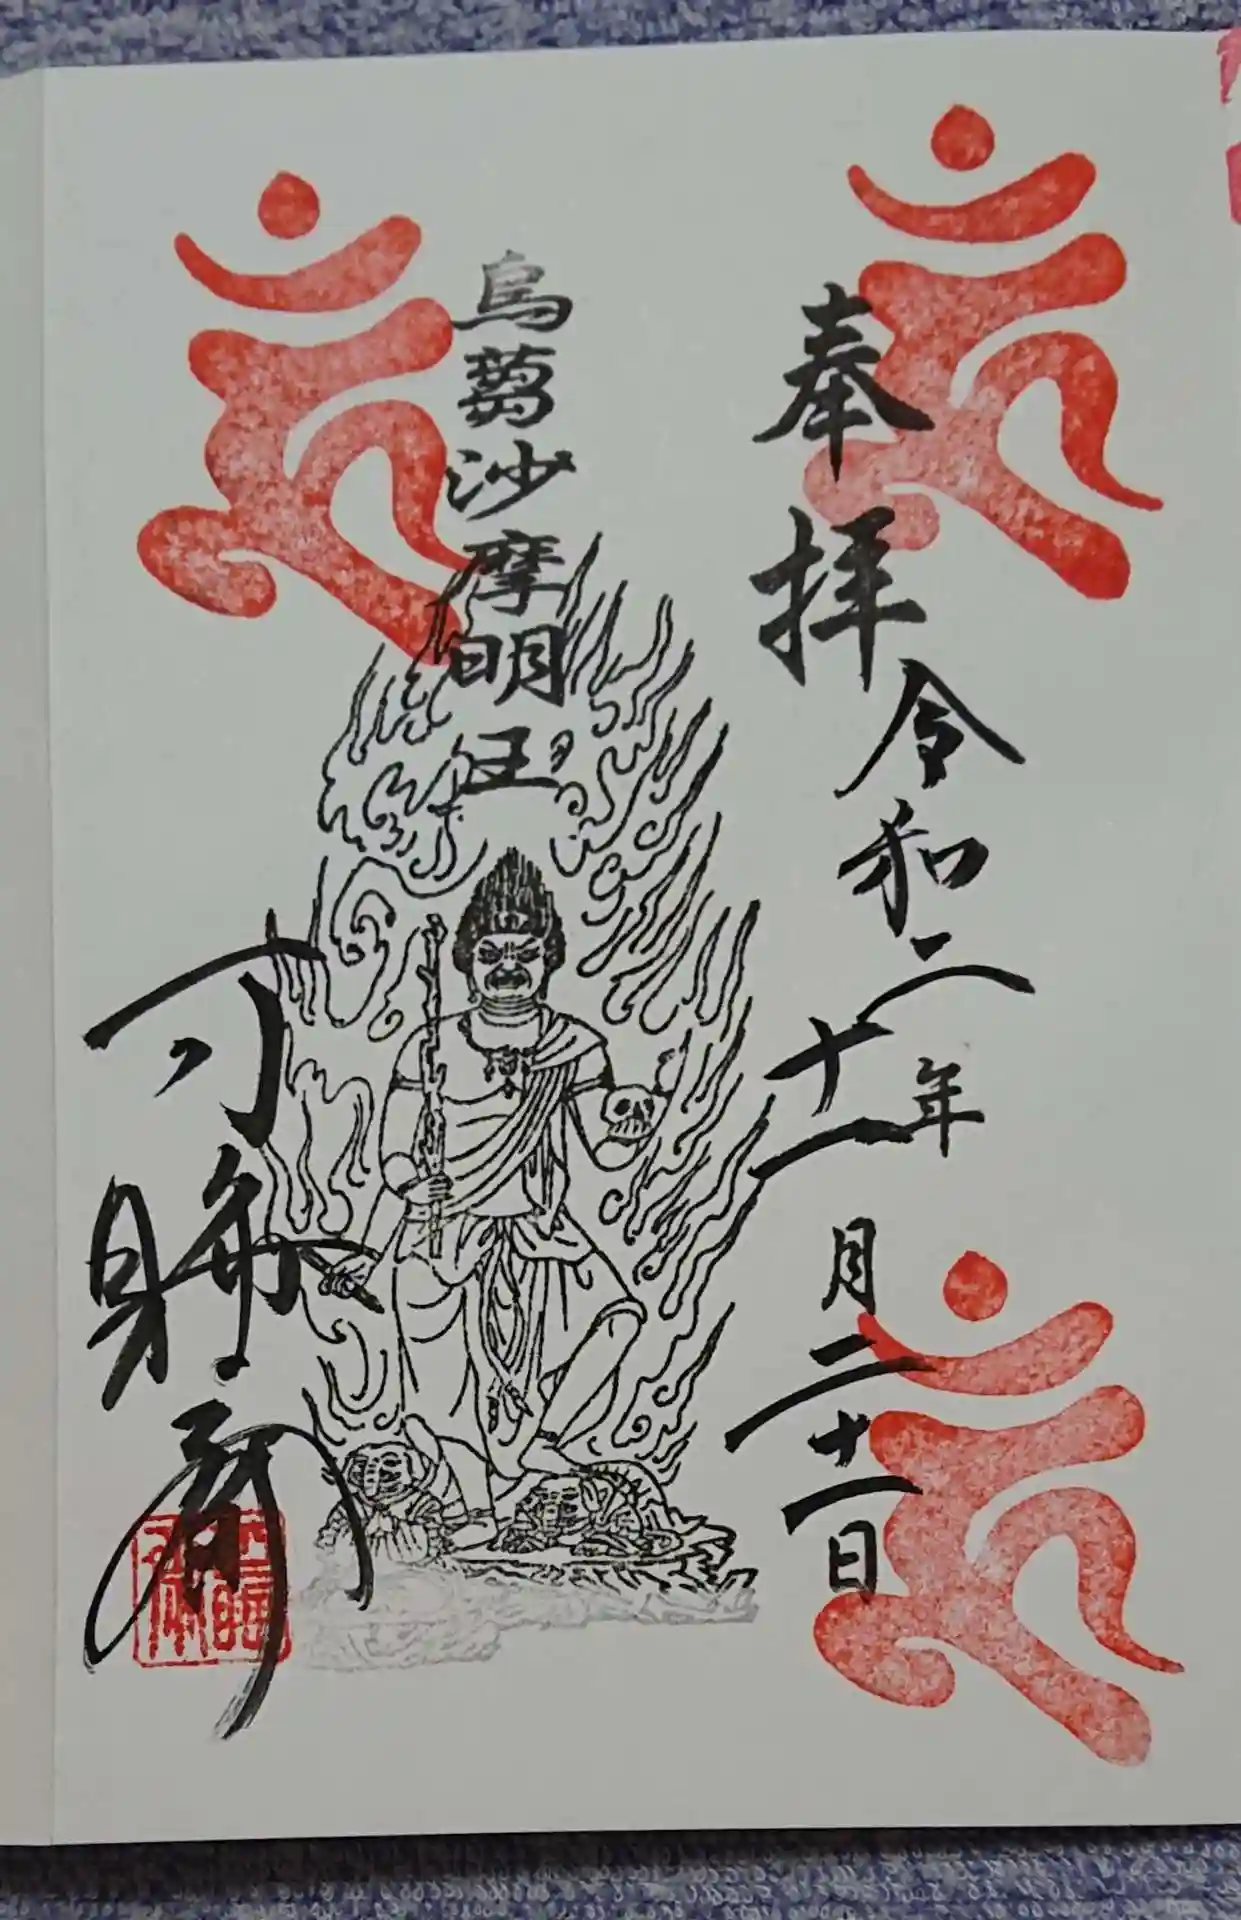 奉拝
令和二年
十一月二十一日
烏蒭沙摩明王
可睡齋